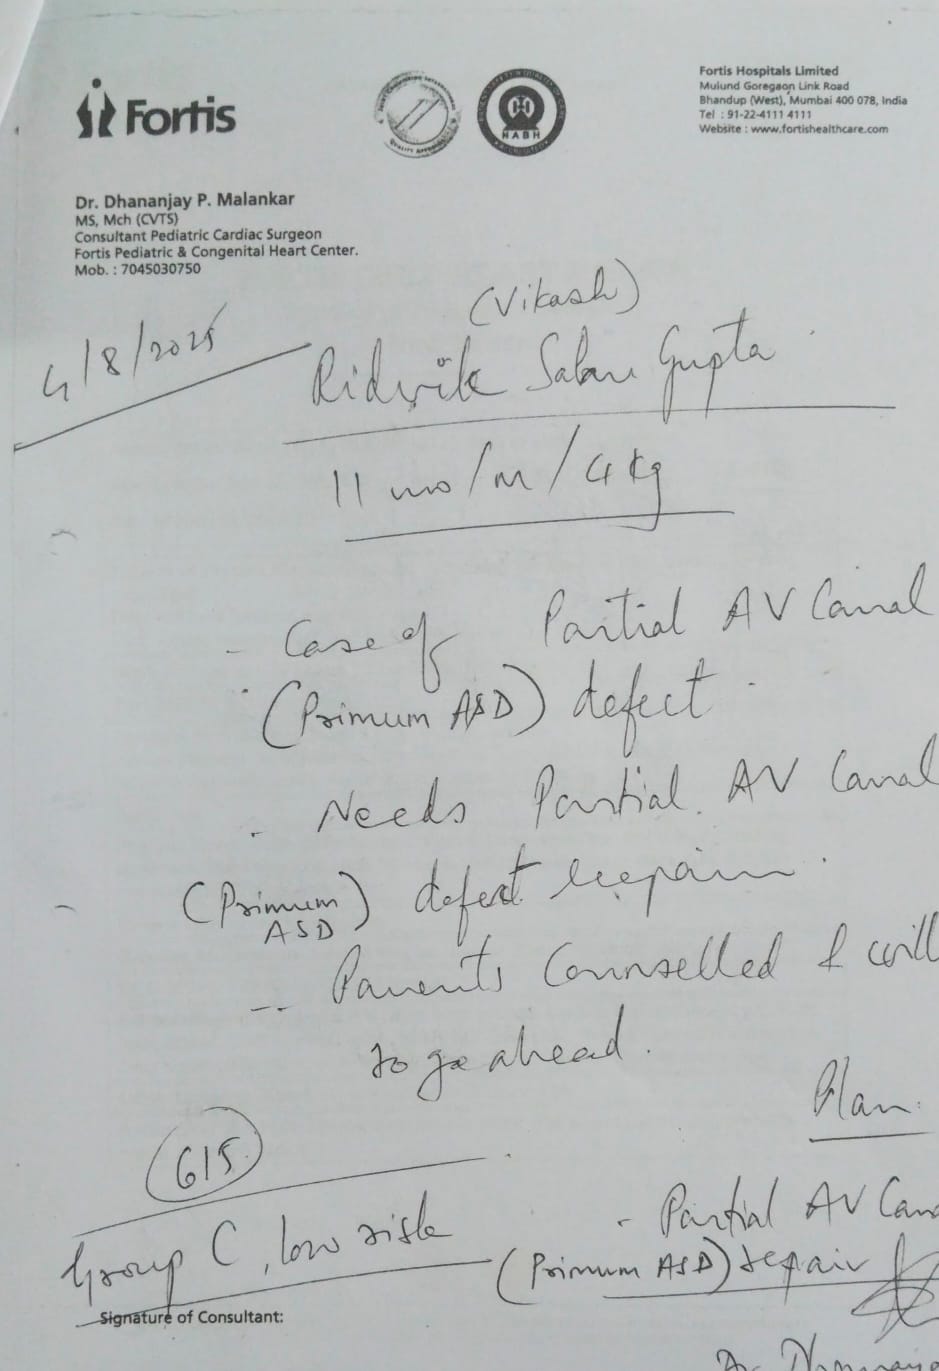 Fortis
NABH
Fortis Hospitals Limited
Mulund Goregaon Link Road
Bhandup (West), Mumbai 400 078, India
Tel : 91-22-4111 4111
Website : www.fortishealthcare.com
Dr. Dhananjay P. Malankar
MS, Mch (CVTS)
Consultant Pediatric Cardiac Surgeon
Fortis Pediatric & Congenital Heart Center.
Mob. : 7045030750
4/8/2025
(Vikash)
Ridvik Gupta
11 mo/M/4 kg
- Case of Partial AV Canal
(Primum ASD) defect
- Needs Partial AV Canal
(Primum ASD) defect repair
-- Parents Counselled & will
to go ahead.
Plan
615
Group C, low risk
- Partial AV Can
(Primum ASD) repair
Signature of Consultant:
Dr